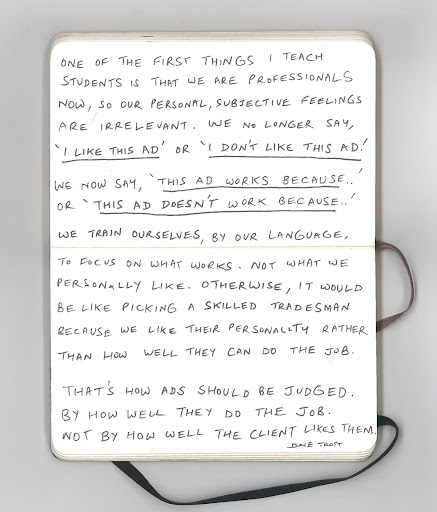 ONE OF THE FIRST THINGS I TEACH
STUDENTS IS THAT WE ARE PROFESSIONALS
NOW, SO OUR PERSONAL, SUBJECTIVE FEELINGS
ARE IRRELEVANT. WE NO LONGER SAY,
'I LIKE THIS AD' OR 'I DON'T LIKE THIS AD.'
WE NOW SAY, 'THIS AD WORKS BECAUSE..'
OR 'THIS AD DOESN'T WORK BECAUSE..'
WE TRAIN OURSELVES, BY OUR LANGUAGE,
TO FOCUS ON WHAT WORKS. NOT WHAT WE
PERSONALLY LIKE. OTHERWISE, IT WOULD
BE LIKE PICKING A SKILLED TRADESMAN
BECAUSE WE LIKE THEIR PERSONALITY RATHER
THAN HOW WELL THEY CAN DO THE JOB.
THAT'S HOW ADS SHOULD BE JUDGED.
BY HOW WELL THEY DO THE JOB.
NOT BY HOW WELL THE CLIENT LIKES THEM.
DAVE TROTT